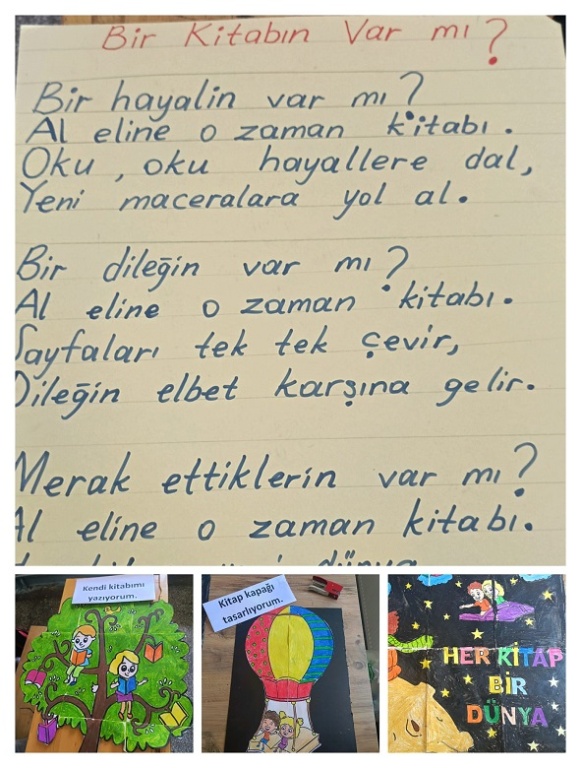 Bir Kitabın Var mı?
Bir hayalin var mı?
Al eline o zaman kitabı.
Oku, oku hayallere dal,
Yeni maceralara yol al.
Bir dileğin var mı?
Al eline o zaman kitabı.
Sayfaları tek tek çevir,
Dileğin elbet karşına gelir.
Merak ettiklerin var mı?
Al eline o zaman kitabı.
Kendi kitabımı
yazıyorum.
Kitap kapağı
tasarlıyorum.
HER KİTAP
BİR
DÜNYA